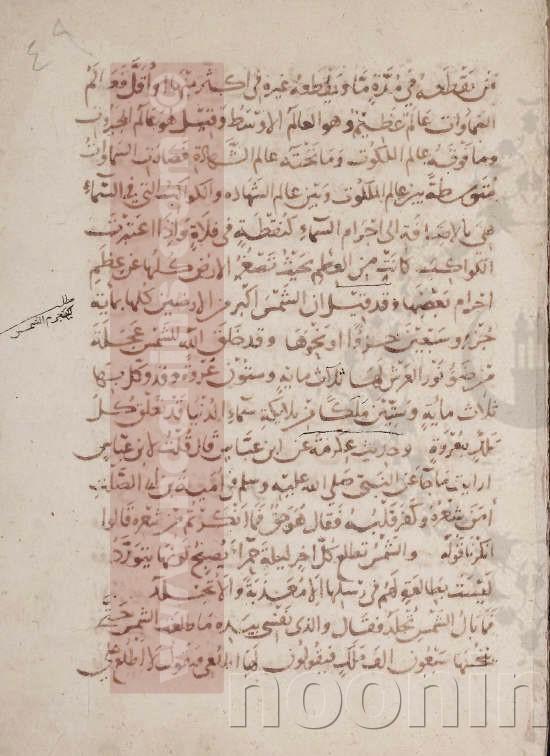 ٤٩
من يقطعه في مدة ما ويقطعه غيره في اكثر منها او اقل فعالم
السماوات عالم عظيم وهو العالم الاوسط وقيل هو عالم الجبروت
وما فوقه عالم الملكوت وما تحته عالم الشهادة فصارت السماوات
متوسطة بين عالم الملكوت وبين عالم الشهاده والكواكب التي في السماء
هي بالاضافة الى اجرام السماء كنقطة في فلاة واذا اعتبرت
الكواكب كانت من العظم بحيث تصغر الارض كلها عن عظم
اجرام بعضها وقد قيل ان الشمس اكبر من الارضين كلها بمائة
جزء وستين جزوا او نحوها وقد خلق الله للشمس عجلة
من ضوء نور العرش لها ثلاث مائه وستون عروة وقد وكل بها
ثلاث مائة وستين ملكا من ملائكة سماء الدنيا قد تعلق كل
ملك بعروة وحديث عكرمة عن ابن عباس قال قلت لابن عباس
ارايت ما جاء عن النبي صلى الله عليه وسلم في امية بن ابي الصلت
امن شعره وكفر قلبه فقال هو حق فما انكرتم من شعره قالوا
انكرنا قوله والشمس تطلع كل اخر ليلة حمراء يصبح لونها يتورد
ليست بطالعة لهم في رسلها الا معذبة والا تجلد
فما بال الشمس تجلد فقال والذي نفسي بيده ما طلعت الشمس حتى
ينخسها سبعون الف ملك فيقولون لها اطلعي فتقول لا اطلع على
مطلب
الشمس
noonin